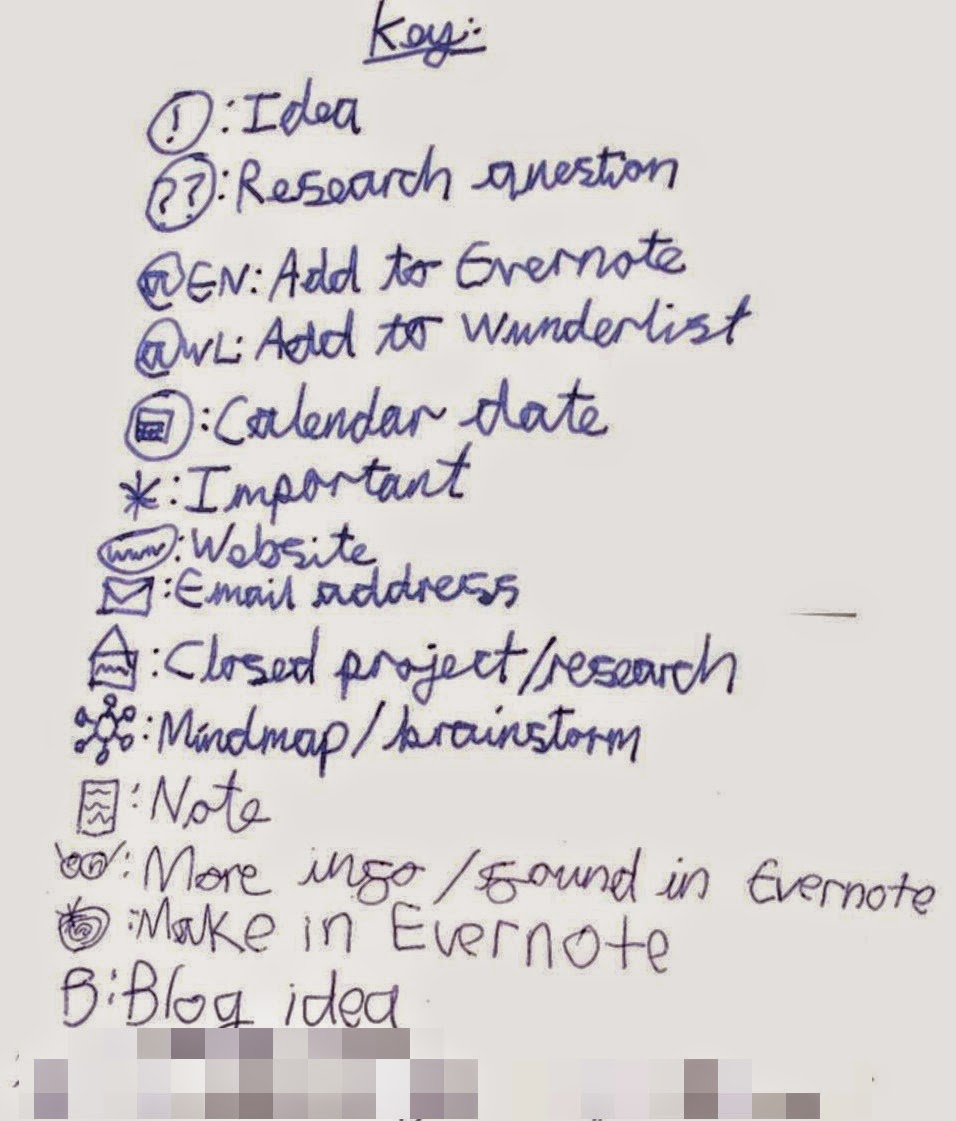 Key:
!: Idea
??: Research question
@EN: Add to Evernote
@WL: Add to Wunderlist
: Calendar date
*: Important
www: Website
: Email address
: Closed project/research
: Mindmap/brainstorm
: Note
: More info/found in Evernote
: Make in Evernote
B: Blog idea